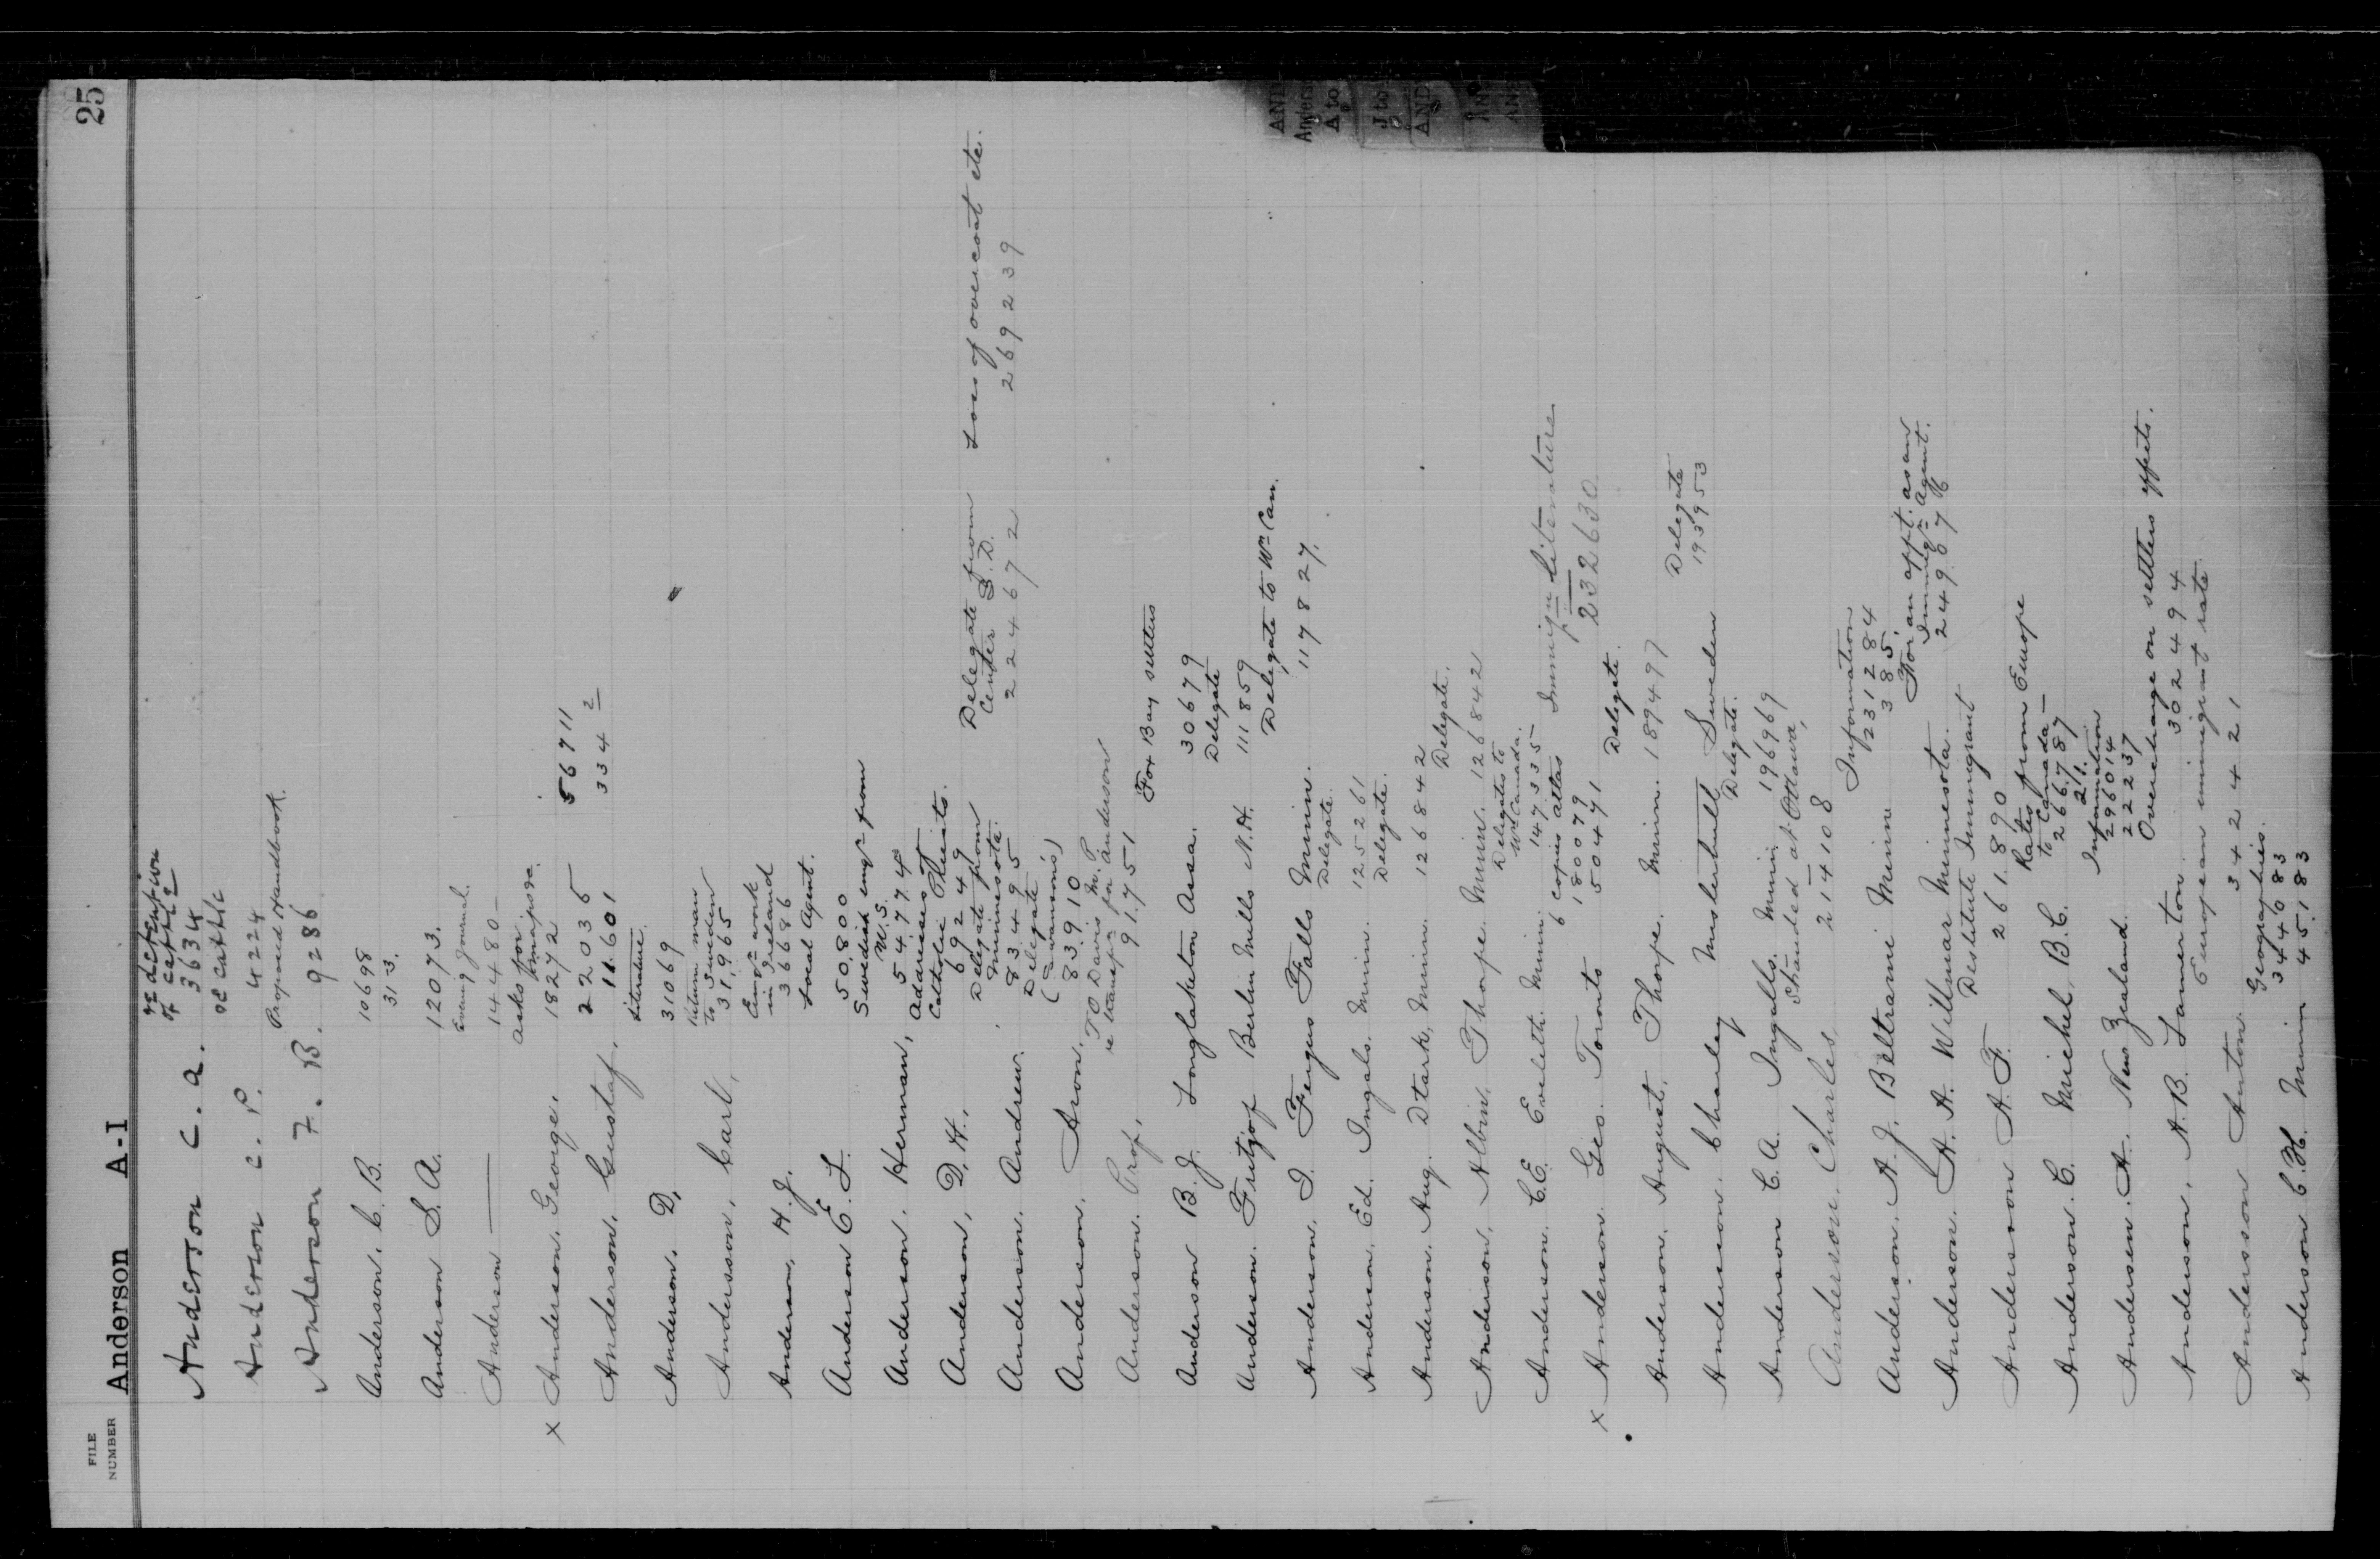 25
FILE
NUMBER
Anderson A-I
re detention
of cattle
Anderson C. A. 3634
re cattle
Anderson C. P. 4224
Proposed Handbook.
Anderson F. B. 9286
Anderson, C. B. 10698
313.
Anderson S. A. 12073.
Evening Journal.
Anderson —— 14480 -
Asks for
x Anderson, George, 18272
22035 56711
Anderson, Gustaf, 11.601 334 2
Literature.
Anderson, D, 31069
Return man
to Sweden
Andersson, Carl, 31,965
Emgn work
in Ireland
Anderson, H. J. 36686
Local Agent.
Anderson E. L. 50,800
Swedish emgn from
U.S.
Anderson. Herman, 54,774
Addresses of
Catholic Priests.
Anderson, D. H., 69249
Delegate from
Minnesota. Delegate from Loss of overcoat etc.
Center S. D.
Anderson. Andrew. 83495 224672 269239
Delegate
Anderson, Aron. 83910
T O Davis M. P.
re transpn for Anderson
Anderson. Prof, 91,751
For Bay settlers
Anderson B. J. Longlaketon Assa. 30679
Delegate
Anderson. Fritjof Berlin Mills N.H. 111859
Delegate to Wn Can.
Anderson, I. Fergus Falls Minn. 117827.
Delegate.
Anderson, Ed. Ingals. Minn. 125261
Delegate.
Anderson, Aug. Minn. 126842
Delegate.
Anderson, Albin, Thorpe. Minn. 126842
Delegate to
Wn Canada.
Anderson. C.E. Eveleth. Minn. 147335
6 copies atlas Immign literature
180079
x Anderson. Geo. Toronto 50471 232630
Delegate.
Anderson. August. Thorpe. Minn. 189497
Delegate
Anderson. Charley Sweden 193953
Delegate.
Anderson C. A. Ingalls. Minn. 196969
Stranded at Ottawa,
Anderson. Charles, 214108
Information
231284
Anderson, A. J. Beltrami Minn 385.
For an appt. as an
Immign Agent.
Anderson. A. A. Willmar Minnesota. 249.67
Destitute Immigrant
Anderson A. F. 261.890
Rates from Europe
to Canada -
Anderson. C. Michel, B.C. 266,787
21.
Information
296014
Andersen. A. New Zealand. 22237
Overcharge on settlers effects.
Anderson, A. B. Lamerton. 302494
European immigrant rate.
Andersson Anton. 342421
Geographies.
344083
Anderson C. H. Minn 45183
AND
Anders
A to
J to
AND
AN
AN